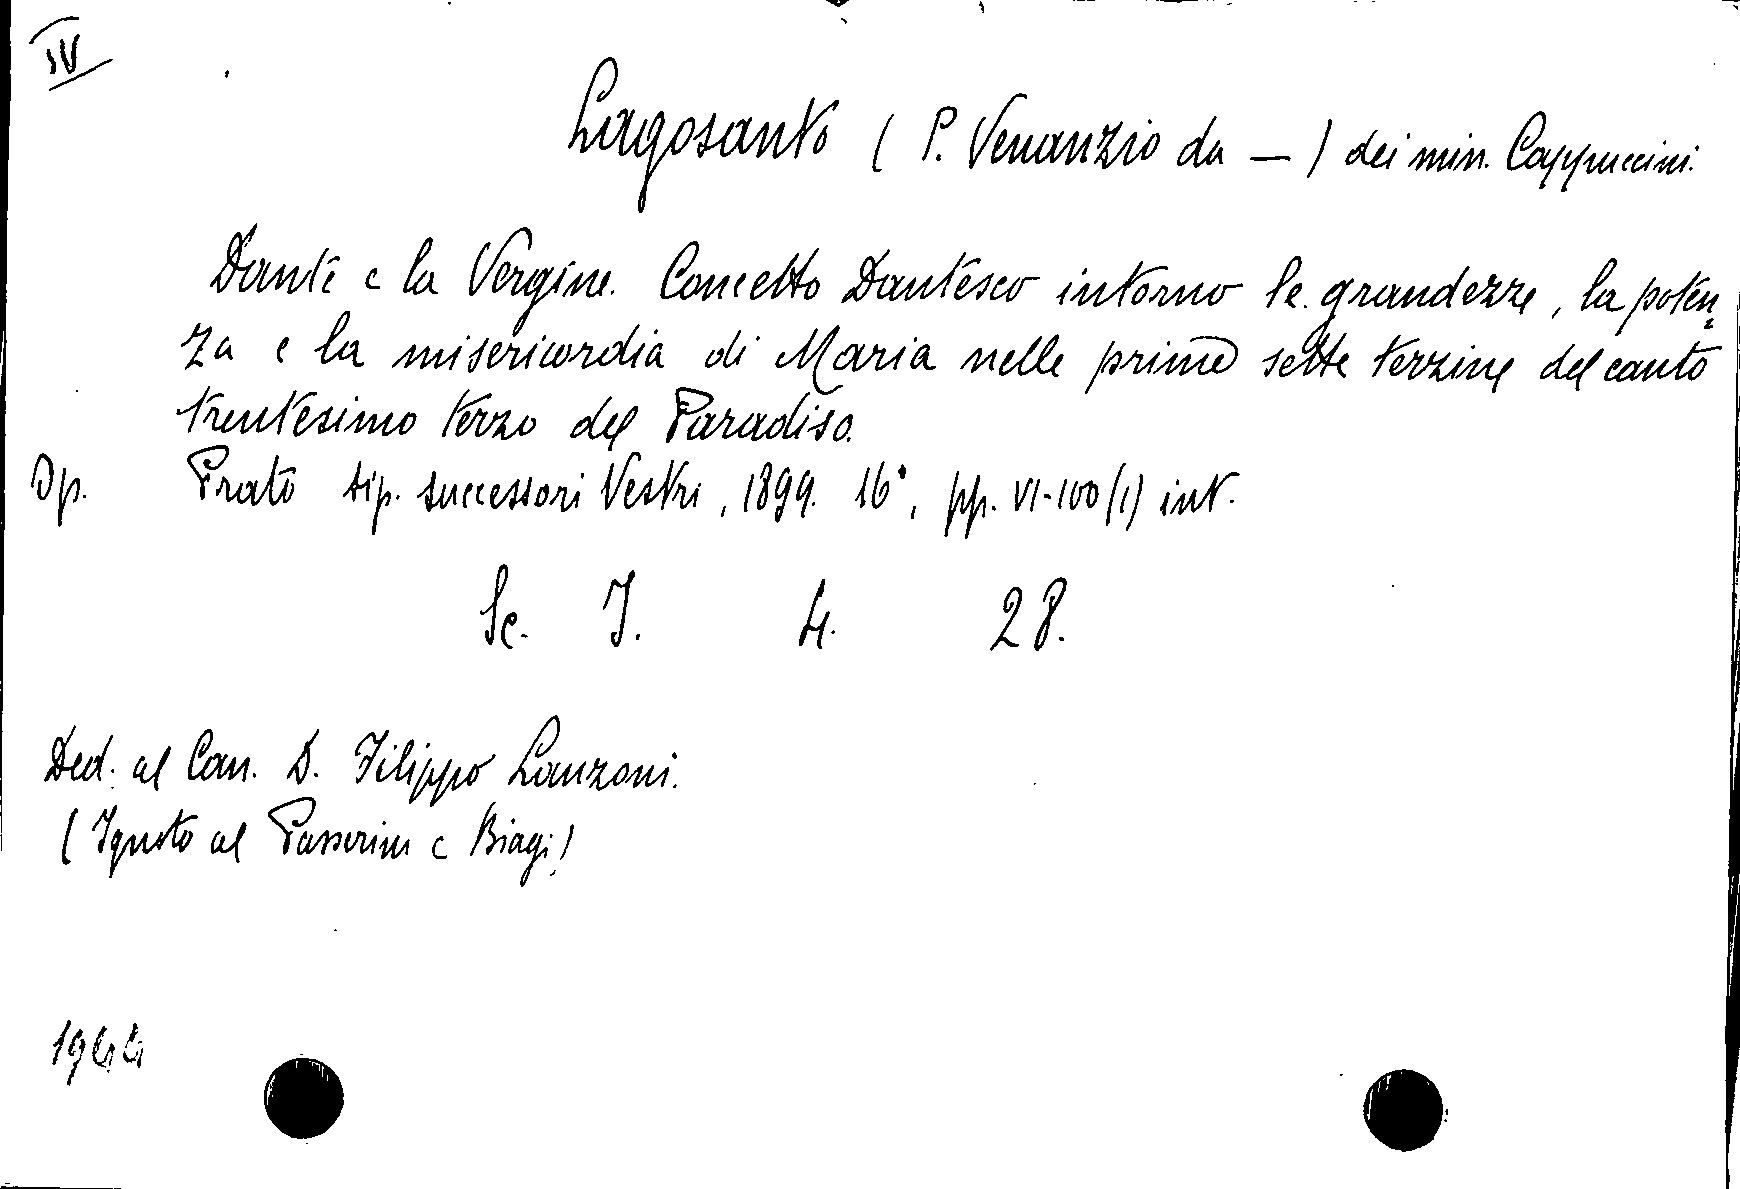 IV
Lagosanto ( P. Venanzio da — ) dei min. Cappuccini.
Dante e la Vergine. Concetto Dantesco intorno le grandezze, la poten=
za e la misericordia di Maria nelle prime sette terzine del canto
trentesimo terzo del Paradiso.
Op. Prato tip. successori Vestri, 1899. 16°, pp. VI-100 (1) int.
Sc. I. 4. 28.
Ded. al Can. D. Filippo Lanzoni.
( Ignoto al Passerini e Biagi )
1944